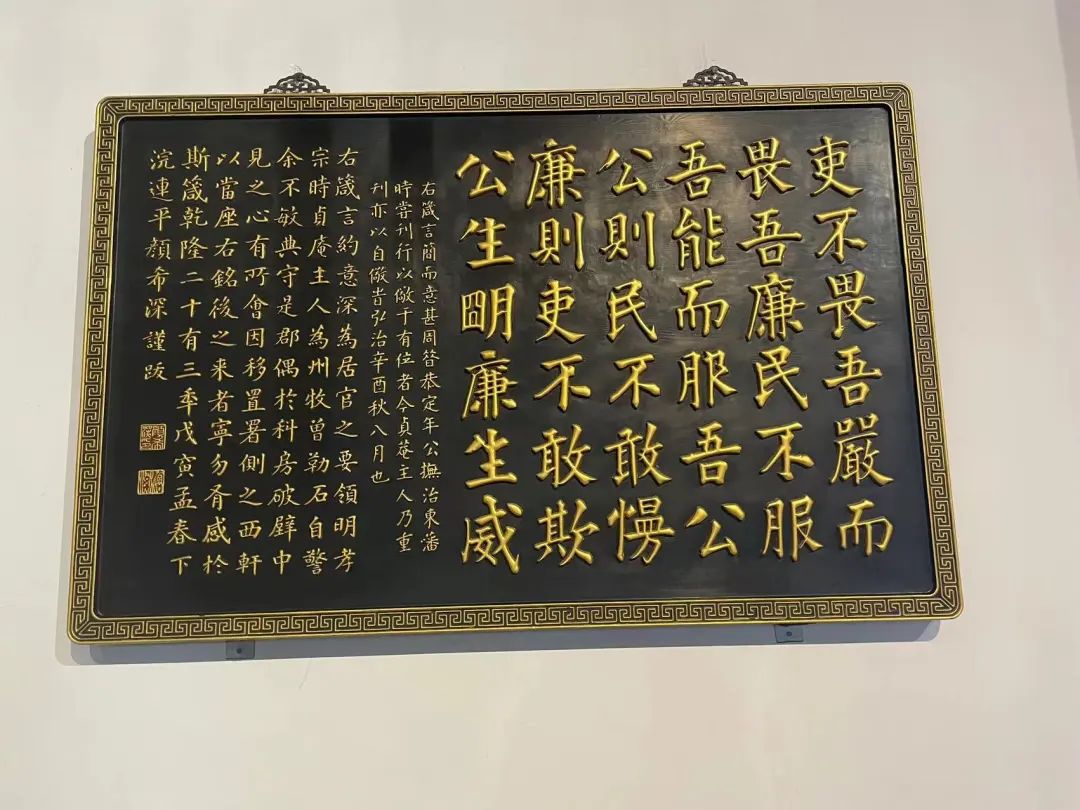 吏不畏吾嚴而
畏吾廉民不服
吾能而服吾公
公則民不敢慢
廉則吏不敢欺
公生明廉生威
右箴言簡而意甚周昝恭定年公撫治東藩
時嘗刊行以儆于有位者今貞菴主人乃重
刊亦以自儆旹弘治辛酉秋八月也
右箴言約意深為居官之要領明孝
宗時貞庵主人為州牧曾勒石自警
余不敏典守是郡偶於科房破壁中
見之心有所會因移置署側之西軒
以當座右銘後之来者寧勿胥感於
斯箴乾隆二十有三年戊寅孟春下
浣連平顏希深謹跋